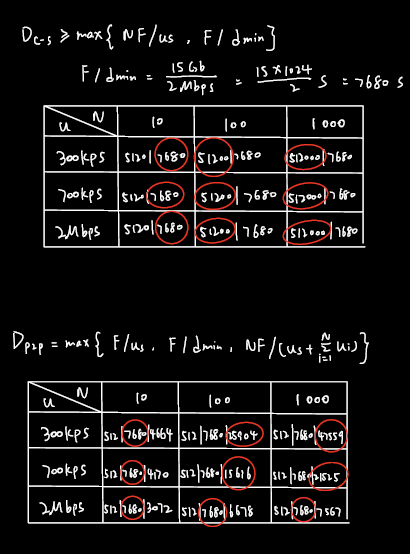 Dc-s ≥ max{ NF/us , F/dmin }
F/dmin = 15Gb / 2Mbps = 15×1024 / 2 S = 7680 S
u N 10 100 1000
300kps 5120|7680 51200|7680 512000|7680
700kps 5120|7680 51200|7680 512000|7680
2Mbps 5120|7680 51200|7680 512000|7680
Dp2p = max{ F/us , F/dmin , NF/(us+ N Σ i=1 ui) }
u N 10 100 1000
300kps 512|7680|4664 512|7680|25904 512|7680|47559
700kps 512|7680|4170 512|7680|15616 512|7680|21525
2Mbps 512|7680|3072 512|7680|6678 512|7680|7567